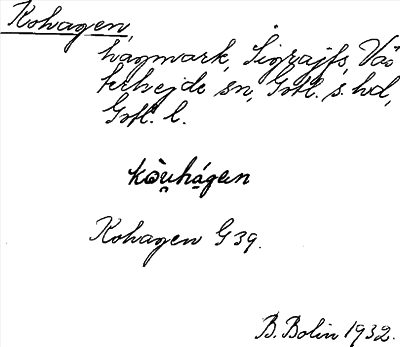 Kohagen,
hagmark, Sigrajfs, Väs
terhejde sn, Gotl. s. hd,
Gotl. l.
kòu̯há̱gen
Kohagen G 39.
B. Bolin 1932.